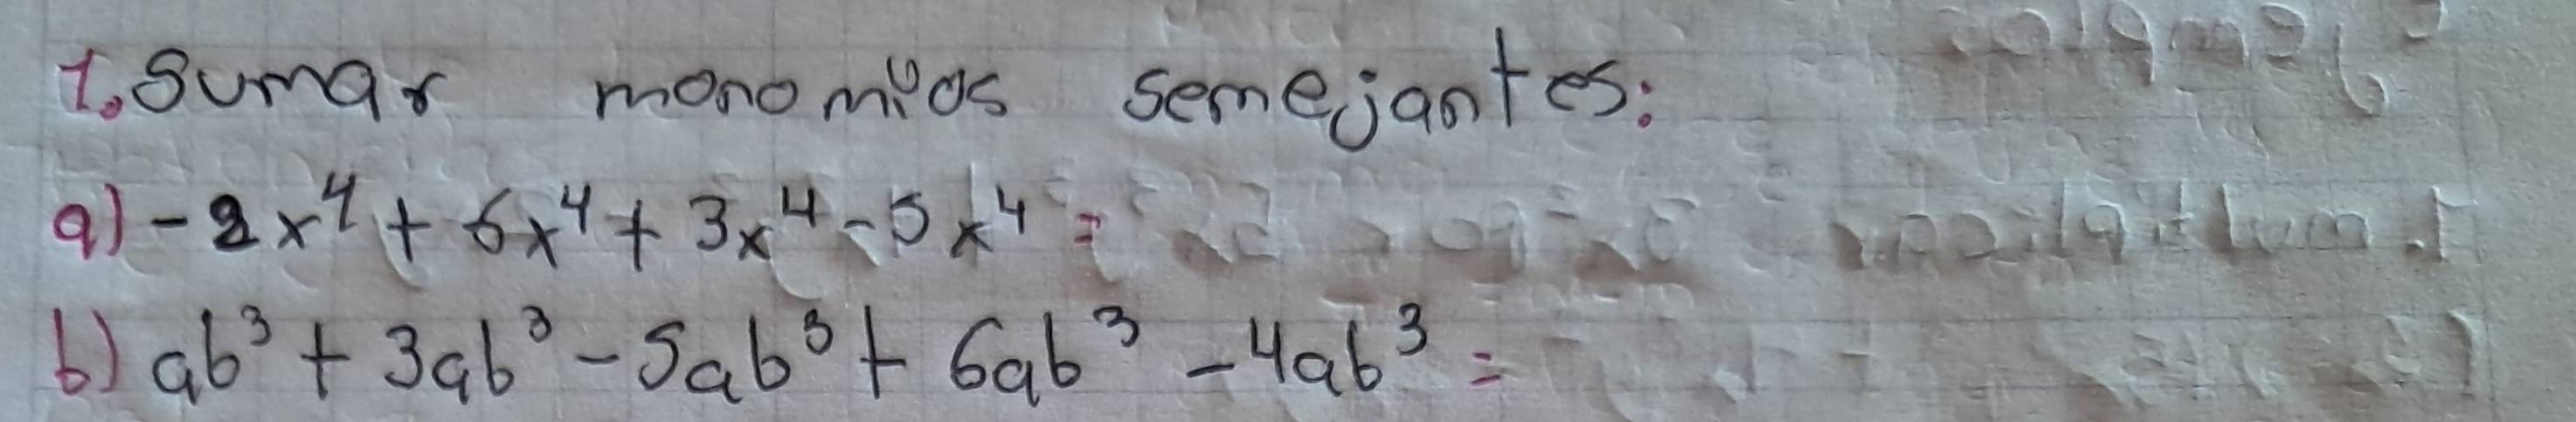 1. Sumar monomios semejantes:
a) -2x⁴ + 6x⁴ + 3x⁴ - 5x⁴ =
b) ab³ + 3ab³ - 5ab³ + 6ab³ - 4ab³ =